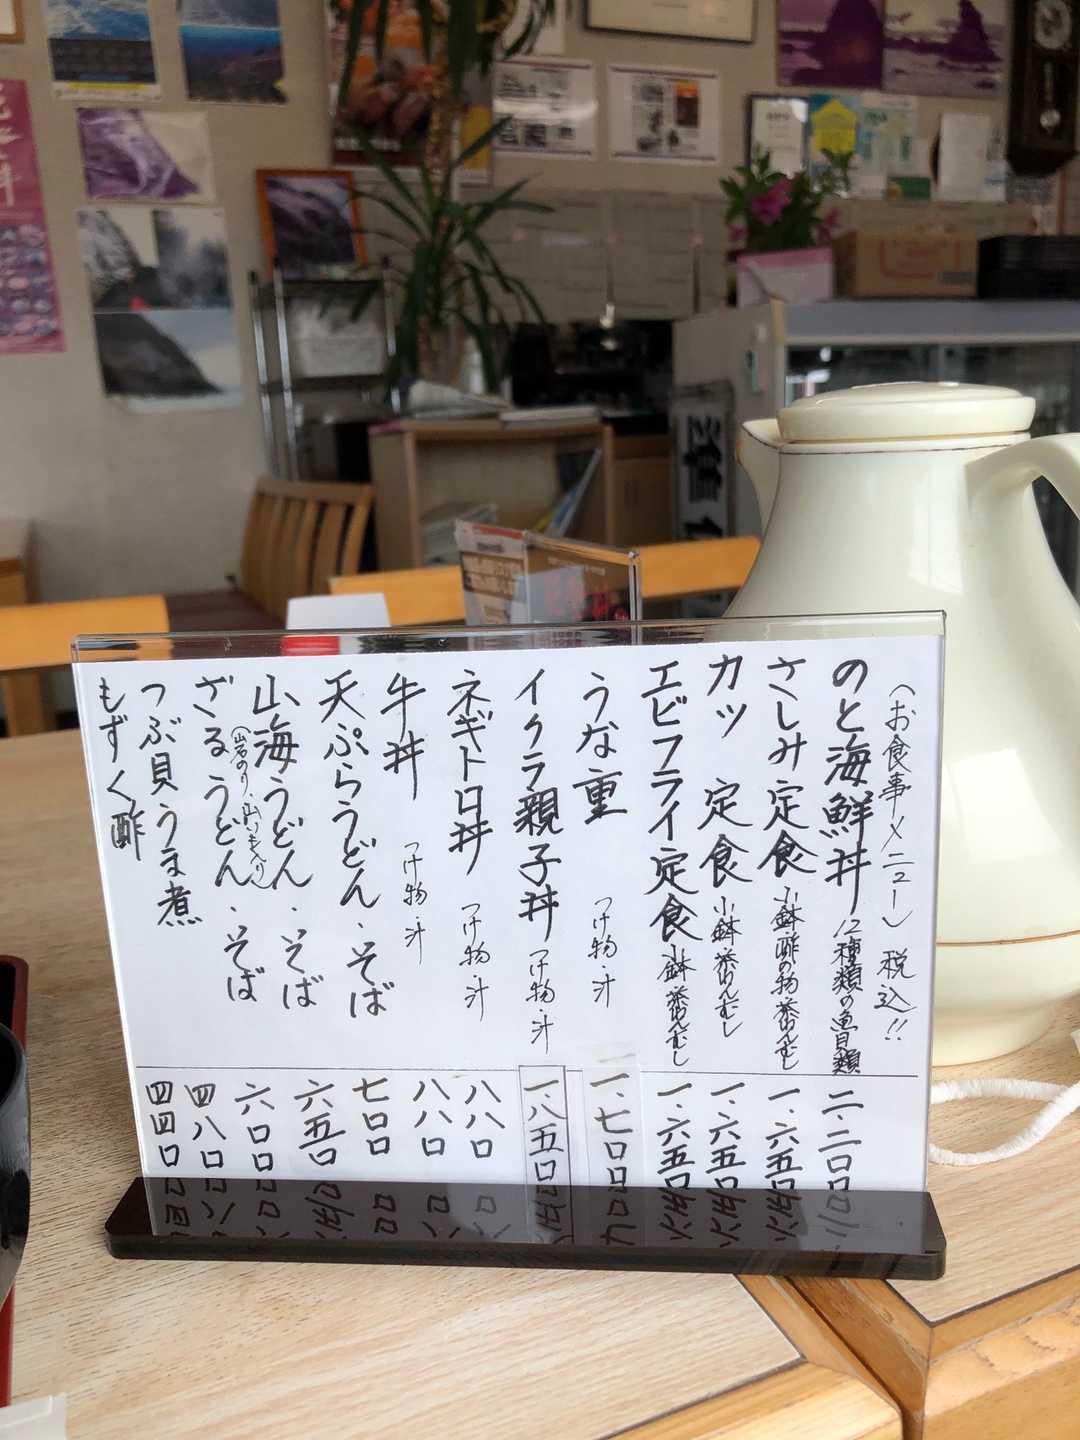 (お食事メニュー) 税込!!
のと海鮮丼 12種類の魚貝類 二・二〇〇
さしみ定食 小鉢 酢の物 茶わんむし 一・六五〇
カツ 定食 小鉢 茶わんむし 一・六五〇
エビフライ定食 小鉢 茶わんむし 一・六五〇
うな重 つけ物・汁 一・七〇〇
イクラ親子丼 つけ物・汁 一・八五〇
ネギトロ丼 つけ物・汁 八八〇
牛丼 つけ物・汁 八八〇
天ぷらうどん・そば 七〇〇
山海うどん・そば 六五〇
(岩のり・山いも入り)
ざるうどん・そば 六〇〇
つぶ貝うま煮 四八〇
もずく酢 四四〇